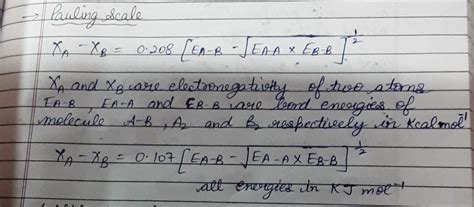 → Pauling Scale
X_A - X_B = 0.208 [E_A-B - √E_A-A × E_B-B]^1/2
X_A and X_B are electronegativity of two atoms
E_A-B, E_A-A and E_B-B are bond energies of
molecule A-B, A_2 and B_2 respectively in Kcal mol^-1
X_A - X_B = 0.107 [E_A-B - √E_A-A × E_B-B]^1/2
all energies in KJ mol^-1